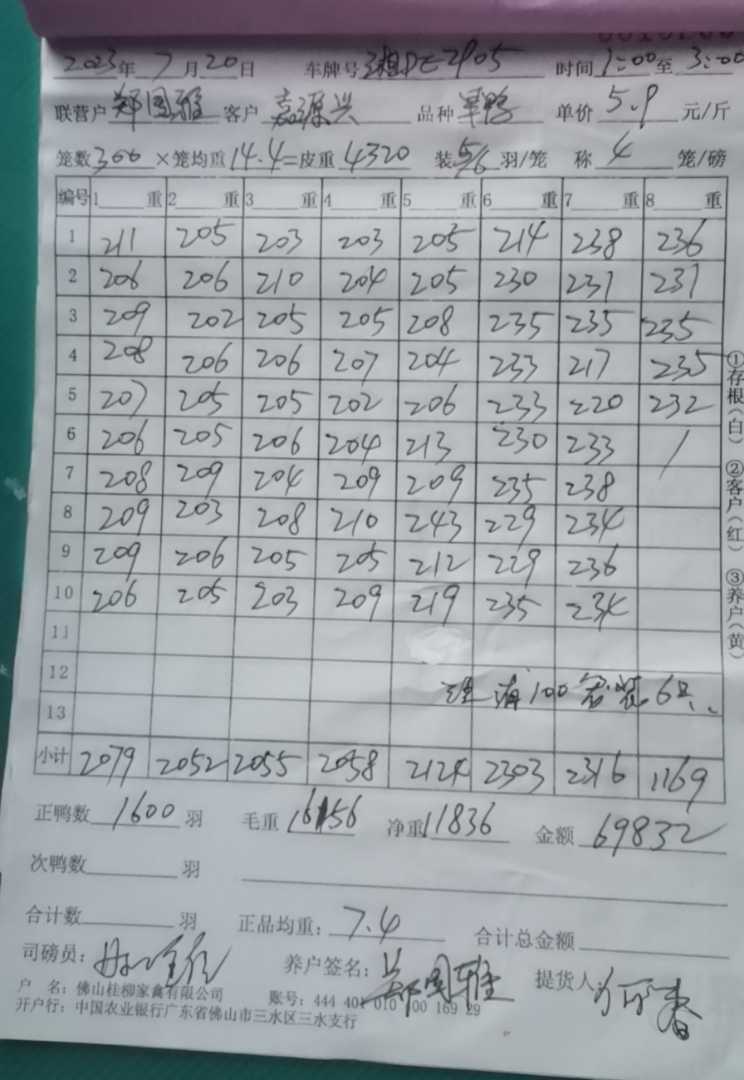 2023年 7月20日 车牌号 2905 时间1:00至3:00
联营户 郑国雅 客户 嘉源兴 品种 单价 5.9 元/斤
笼数300×笼均重14.4=皮重4320 装5/6羽/笼 称 4 笼/磅
编号 1 重 2 重 3 重 4 重 5 重 6 重 7 重 8 重
1 211 205 203 203 205 214 238 236
2 206 206 210 204 205 230 231 231
3 209 202 205 205 208 235 235 235
4 208 206 206 207 204 233 217 235
5 207 205 205 202 206 233 220 232
6 206 205 206 204 213 230 233 /
7 208 209 204 209 209 235 238
8 209 203 208 210 243 229 234
9 209 206 205 205 212 229 236
10 206 205 203 209 219 235 234
11
12
100 装6只
13
小计 2079 2052 2055 2058 2124 2303 2316 1169
正鸭数 1600 羽 毛重 16156 净重11836 金额 69832
次鸭数 羽
合计数 羽 正品均重: 7.4 合计总金额
司磅员: 养户签名: 郑国雅 提货人
户 名: 佛山桂柳家禽有限公司 账号: 444 401 010 400 169 29
开户行: 中国农业银行广东省佛山市三水区三水支行
①存根(白) ②客户(红) ③养户(黄)